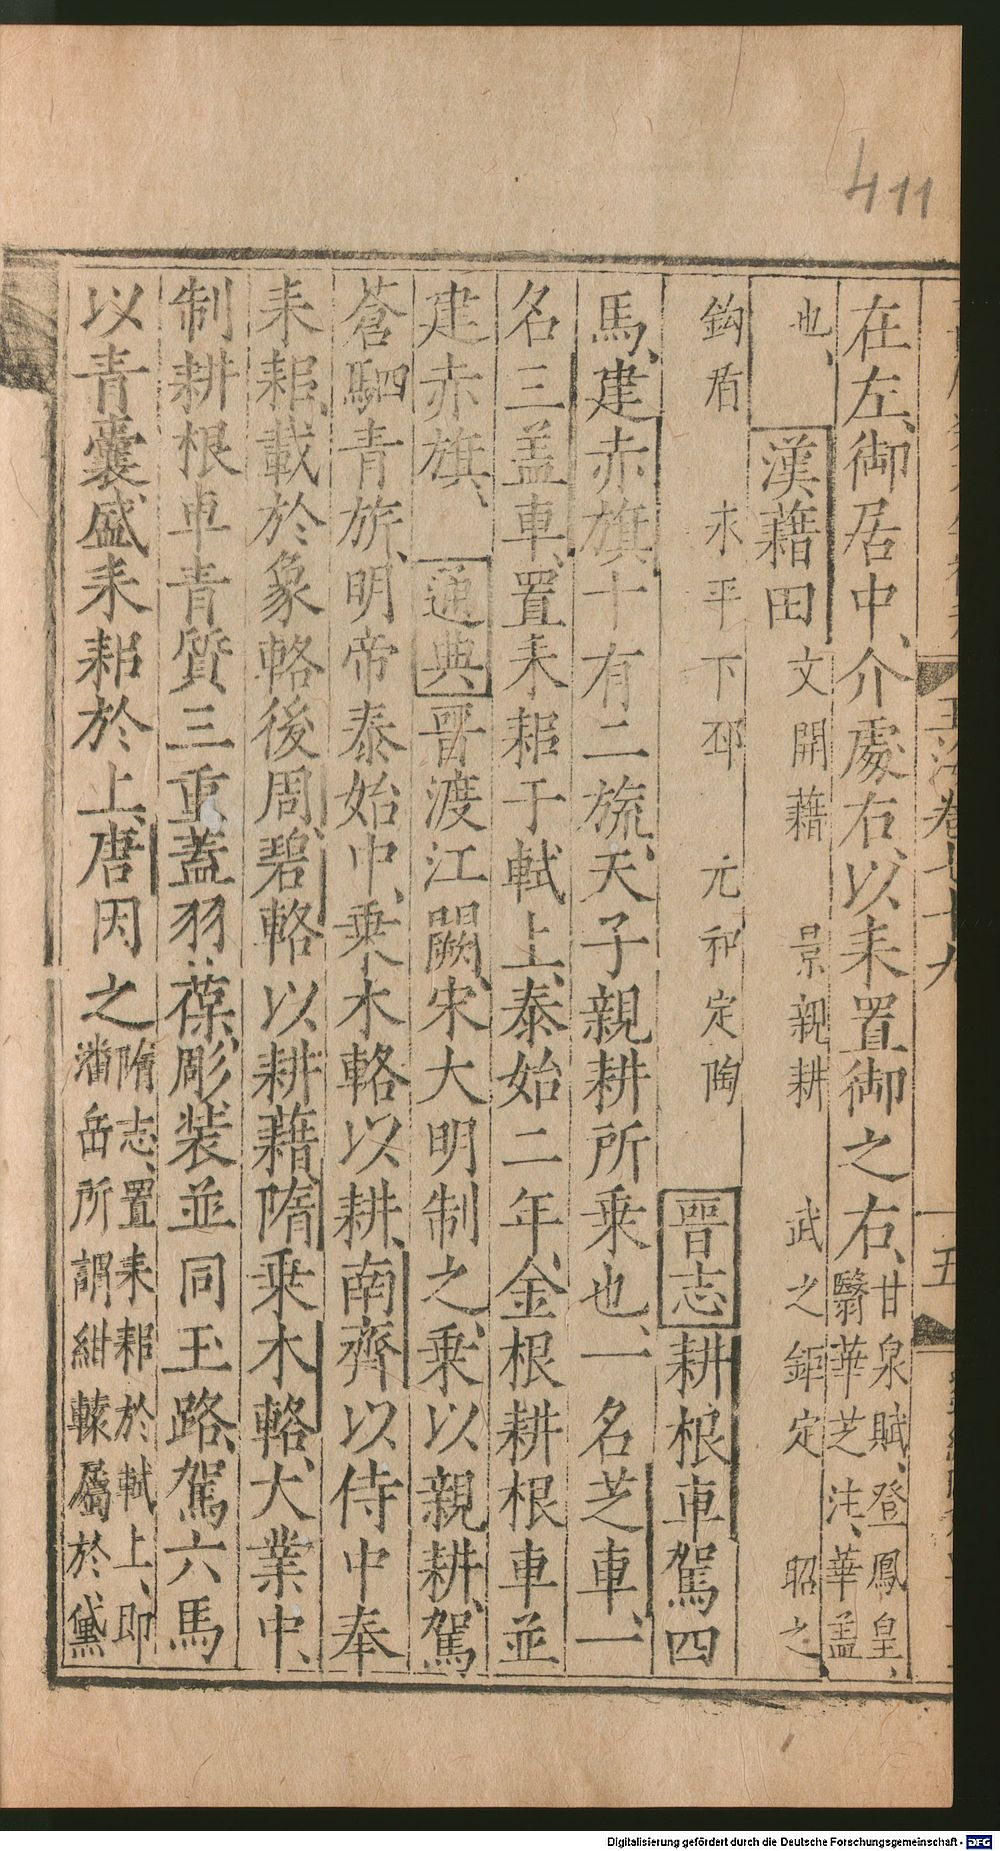 411
玉海卷七十九
五
在左御居中、介處右、以耒置御之右、甘泉賦、登鳳皇、
翳華芝注、華蓋
也、漢藉田 文開藉 景親耕 武之鉅定 昭之
鈎盾 永平下邳 元和定陶 晉志耕根車駕四
馬、建赤旗十有二旒、天子親耕所乘也、一名芝車、一
名三盖車、置耒耜于軾上、泰始二年、金根耕根車並
建赤旗、通典、晋渡江闕、宋大明制之、乘以親耕、駕
蒼駟青旂、明帝泰始中、乗木輅以耕、南齊以侍中奉
耒耜、載於象輅後周碧輅以耕藉、隋乗木輅、大業中、
制耕根車青質三重蓋羽葆、彫装並同玉路、駕六馬
以青囊盛耒耜於上、唐因之隋志、置耒耜於軾上、即
潘岳所謂紺轅屬於黛
Digitalisierung gefördert durch die Deutsche Forschungsgemeinschaft - DFG